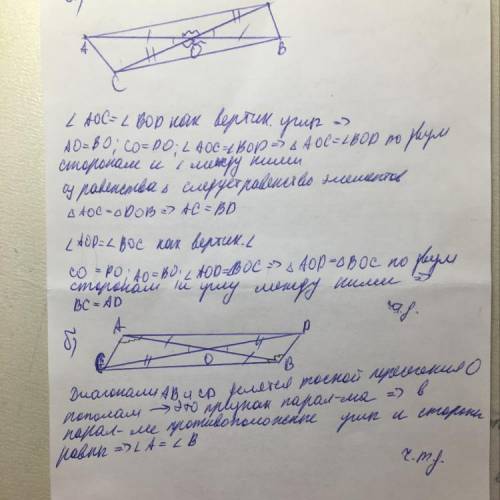 A
O
B
C
∠ AOC = ∠ BOD как вертик. углы =>
AO=BO; CO=DO; ∠AOC=∠BOD => △ AOC = ∠BOD по двум
сторонам и ∠ между ними
из равенства △ следует равенство элементов
△ AOC = △DOB => AC = BD
∠AOD = ∠BOC как вертик. ∠
CO = DO; AO=BO; ∠AOD=∠BOC => △ AOD = △BOC по двум
сторонам и углу между ними =>
BC = AD
ч.т.д.
б)
A
D
C
O
B
Диагонали AB и CD делятся точкой пересечения O
пополам → это признак парал-ма => в
парал-ме противоположные углы и стороны
равны => ∠A = ∠B
ч.т.д.